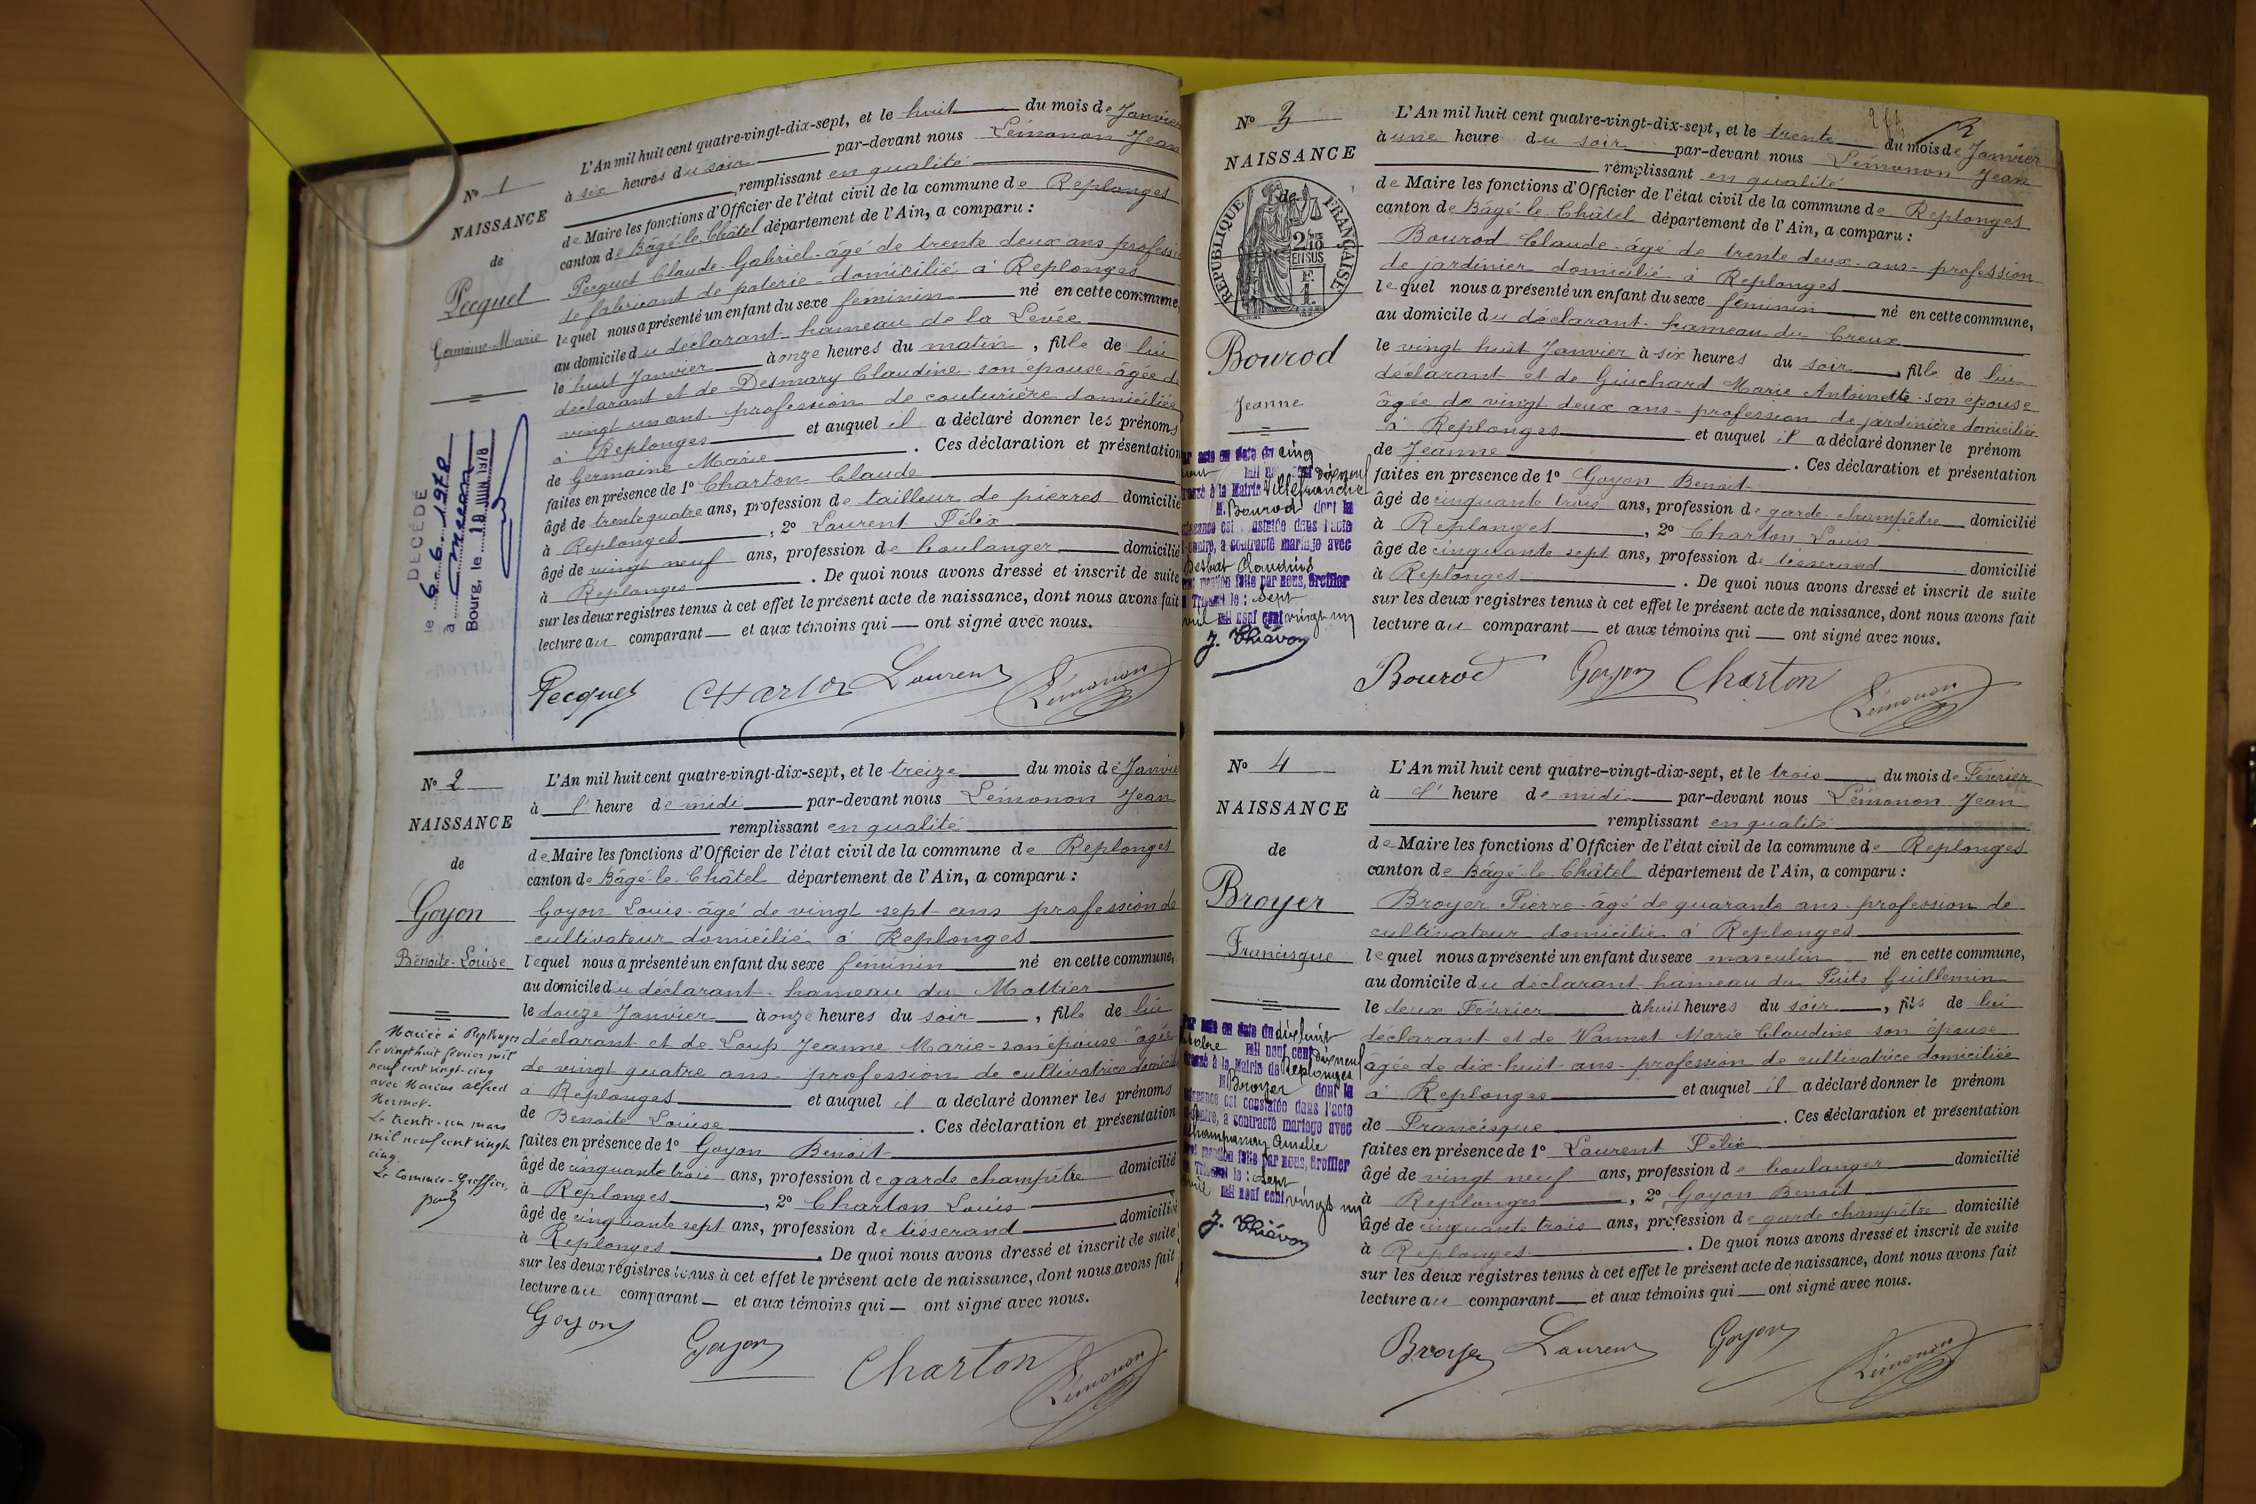 N° 1
NAISSANCE
de
Pecquet
Germaine-Marie
DÉCÉDÉ
le 6.6.1978
à
Bourg, le 19 JUIN 1978
L'An mil huit cent quatre-vingt-dix-sept, et le huit du mois de Janvier
à six heures du soir par-devant nous Lémonon Jean
remplissant en qualité
de Maire les fonctions d'Officier de l'état civil de la commune de Replonges
canton de Bâgé-le-Châtel département de l'Ain, a comparu :
Pecquet Claude-Gabriel-âgé de trente deux ans profession
de fabricant de poterie-domicilié à Replonges
lequel nous a présenté un enfant du sexe féminin né en cette commune,
au domicile du déclarant-hameau de la Levée
le huit Janvier à onze heures du matin, fille de lui
déclarant et de Desmary Claudine-son épouse-âgée de
vingt un ans profession de couturière domiciliée
à Replonges et auquel il a déclaré donner les prénoms
de Germaine Marie. Ces déclaration et présentation
faites en présence de 1° Charton Claude
âgé de trente quatre ans, profession de tailleur de pierres domicilié
à Replonges, 2° Laurent Félix
âgé de vingt neuf ans, profession de boulanger domicilié
à Replonges. De quoi nous avons dressé et inscrit de suite
sur les deux registres tenus à cet effet le présent acte de naissance, dont nous avons fait
lecture au comparant et aux témoins qui ont signé avec nous.
Pecquet Charton Laurent Lémonon
N° 2
NAISSANCE
de
Goyon
Benoite-Louise
Mariée à Replonges
le vingt huit février mil
neuf cent vingt-cinq
avec Marius Alfred
Mermet.
Le trente-un mars
mil neuf cent vingt
cinq.
Le Commis-Greffier,
L'An mil huit cent quatre-vingt-dix-sept, et le treize du mois de Janvier
à l' heure de midi par-devant nous Lémonon Jean
remplissant en qualité
de Maire les fonctions d'Officier de l'état civil de la commune de Replonges
canton de Bâgé-le-Châtel département de l'Ain, a comparu :
Goyon Louis-âgé de vingt sept ans profession de
cultivateur domicilié à Replonges
lequel nous a présenté un enfant du sexe féminin né en cette commune,
au domicile du déclarant-hameau du Mottier
le douze Janvier à onze heures du soir, fille de lui
déclarant et de Loup Jeanne Marie-son épouse-âgée
de vingt quatre ans-profession de cultivatrice domiciliée
à Replonges et auquel il a déclaré donner les prénoms
de Benoite Louise. Ces déclaration et présentation
faites en présence de 1° Goyon Benoit
âgé de cinquante trois ans, profession de garde champêtre domicilié
à Replonges, 2° Charton Louis
âgé de cinquante sept ans, profession de tisserand domicilié
à Replonges. De quoi nous avons dressé et inscrit de suite
sur les deux registres tenus à cet effet le présent acte de naissance, dont nous avons fait
lecture au comparant et aux témoins qui ont signé avec nous.
Goyon Goyon Charton Lémonon
N° 3
NAISSANCE
de
RÉPUBLIQUE FRANÇAISE
2/10
EN SUS
Bourod
Jeanne
par acte en date du cinq
mil neuf cent dix neuf
dressé à la Mairie Villefranche
M. Bourod dont la
naissance est constatée dans l'acte
ci-contre, a contracté mariage avec
Desbat Claudius
mention faite par nous, Greffier
du Tribunal le : sept
avril mil neuf cent vingt un
J. Thiévon
L'An mil huit cent quatre-vingt-dix-sept, et le trente du mois de Janvier
à une heure du soir par-devant nous Lémonon Jean
remplissant en qualité
de Maire les fonctions d'Officier de l'état civil de la commune de Replonges
canton de Bâgé-le-Châtel département de l'Ain, a comparu :
Bourod Claude-âgé de trente deux-ans-profession
de jardinier domicilié à Replonges
lequel nous a présenté un enfant du sexe féminin né en cette commune,
au domicile du déclarant-hameau du Creux
le vingt huit Janvier à six heures du soir, fille de lui
déclarant et de Guichard Marie Antoinette-son épouse
âgée de vingt deux ans-profession de jardinière domiciliée
à Replonges et auquel il a déclaré donner le prénom
de Jeanne. Ces déclaration et présentation
faites en presence de 1° Goyon Benoit
âgé de cinquante trois ans, profession de garde champêtre domicilié
à Replonges, 2° Charton Louis
âgé de cinquante sept ans, profession de tisserand domicilié
à Replonges. De quoi nous avons dressé et inscrit de suite
sur les deux registres tenus à cet effet le présent acte de naissance, dont nous avons fait
lecture au comparant et aux témoins qui ont signé avec nous.
Bourod Goyon Charton Lémonon
N° 4
NAISSANCE
de
Broyer
Francisque
Par acte en date du dix huit
octobre mil neuf cent dix neuf
dressé à la Mairie de Replonges
M Broyer dont la
naissance est constatée dans l'acte
ci-contre, a contracté mariage avec
Champanay Amélie
mention faite par nous, Greffier
du Tribunal le : sept
avril mil neuf cent vingt un
J. Thiévon
L'An mil huit cent quatre-vingt-dix-sept, et le trois du mois de Février
à l' heure de midi par-devant nous Lémonon Jean
remplissant en qualité
de Maire les fonctions d'Officier de l'état civil de la commune de Replonges
canton de Bâgé-le-Châtel département de l'Ain, a comparu :
Broyer Pierre-âgé de quarante ans-profession de
cultivateur domicilié à Replonges
lequel nous a présenté un enfant du sexe masculin né en cette commune,
au domicile du déclarant-hameau du Puits Guillemin
le deux Février à huit heures du soir, fils de lui
déclarant et de Vannet Marie Claudine son épouse
âgée de dix-huit-ans-profession de cultivatrice domiciliée
à Replonges et auquel il a déclaré donner le prénom
de Francisque. Ces déclaration et présentation
faites en présence de 1° Laurent Félix
âgé de vingt neuf ans, profession de boulanger domicilié
à Replonges, 2° Goyon Benoit
âgé de cinquante trois ans, profession de garde champêtre domicilié
à Replonges. De quoi nous avons dressé et inscrit de suite
sur les deux registres tenus à cet effet le présent acte de naissance, dont nous avons fait
lecture au comparant et aux témoins qui ont signé avec nous.
Broyer Laurent Goyon Lémonon